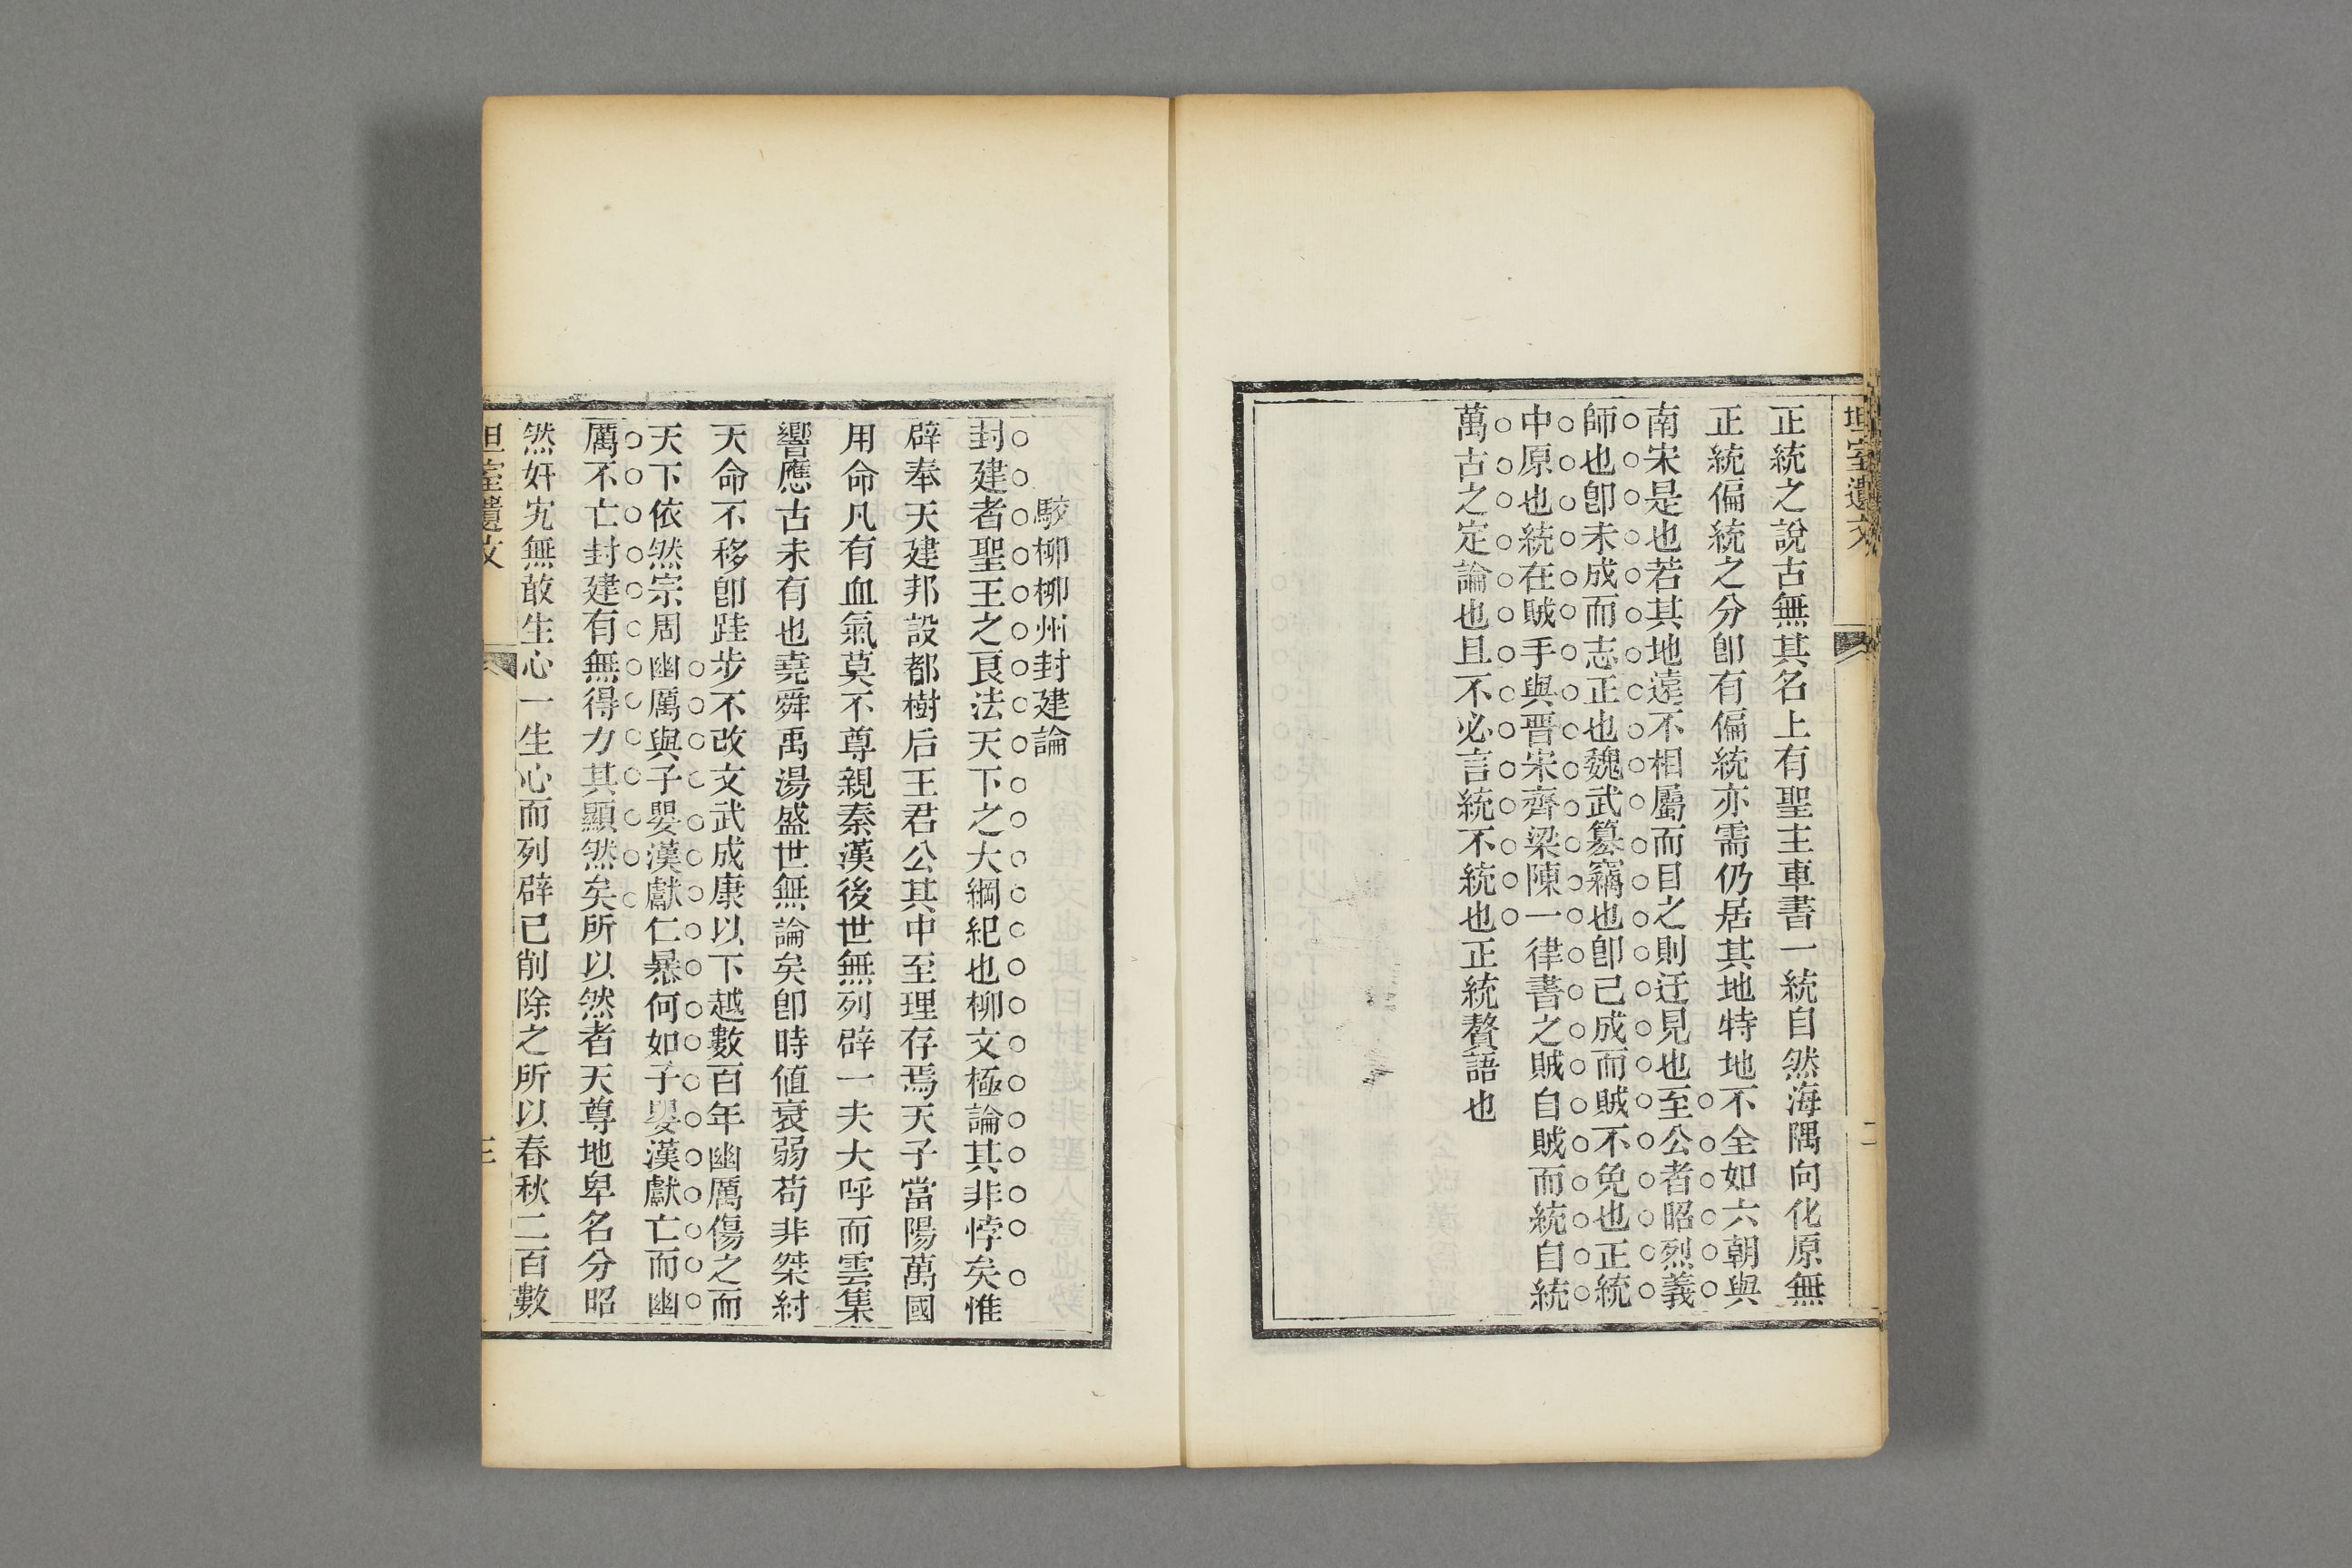 坦室遺文
二
正統之說古無其名上有聖主車書一統自然海隅向化原無
正統偏統之分卽有偏統亦需仍居其地特地不全如六朝與
南宋是也若其地遠不相屬而目之則迂見也至公者昭烈義
師也卽未成而志正也魏武篡竊也卽己成而賊不免也正統
中原也統在賊手與晋宋齊梁陳一律書之賊自賊而統自統
萬古之定論也且不必言統不統也正統贅語也
駮柳柳州封建論
封建者聖王之良法天下之大綱紀也柳文極論其非悖矣惟
辟奉天建邦設都樹后王君公其中至理存焉天子當陽萬國
用命凡有血氣莫不尊親秦漢後世無列辟一夫大呼而雲集
響應古未有也堯舜禹湯盛世無論矣卽時值衰弱苟非桀紂
天命不移卽跬步不改文武成康以下越數百年幽厲傷之而
天下依然宗周幽厲與子嬰漢獻仁暴何如子嬰漢獻亡而幽
厲不亡封建有無得力其顯然矣所以然者天尊地卑名分昭
然奸宄無敢生心一生心而列辟已削除之所以春秋二百數
坦室遺文
三